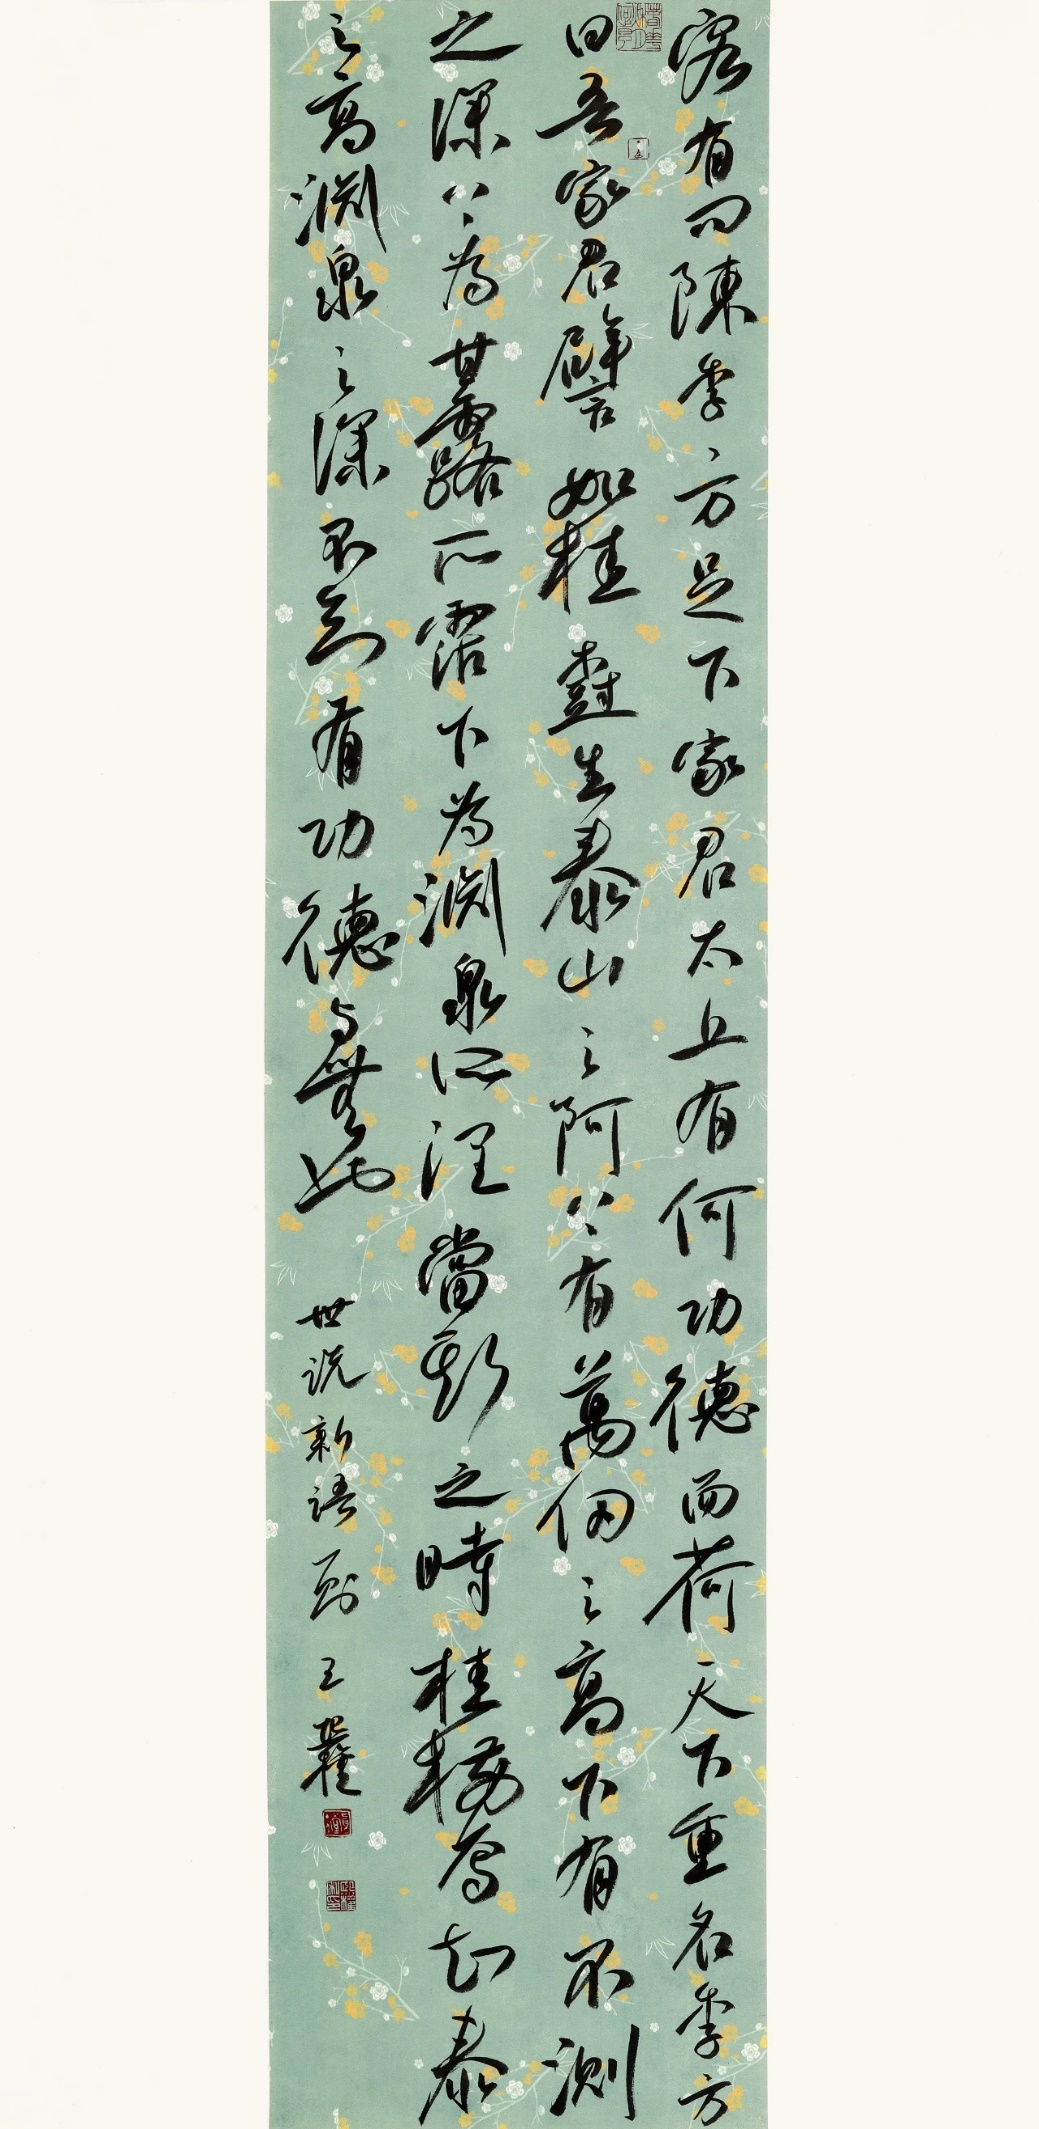 客有问陳季方足下家君太丘有何功德而荷天下重名季方
曰吾家君譬如桂樹生泰山之阿上有萬仞之高下有不測
之深上為甘露所霑下為淵泉所潤當斯之時桂樹焉知泰
之高淵泉之深不知有功德與無也
世说新语 王